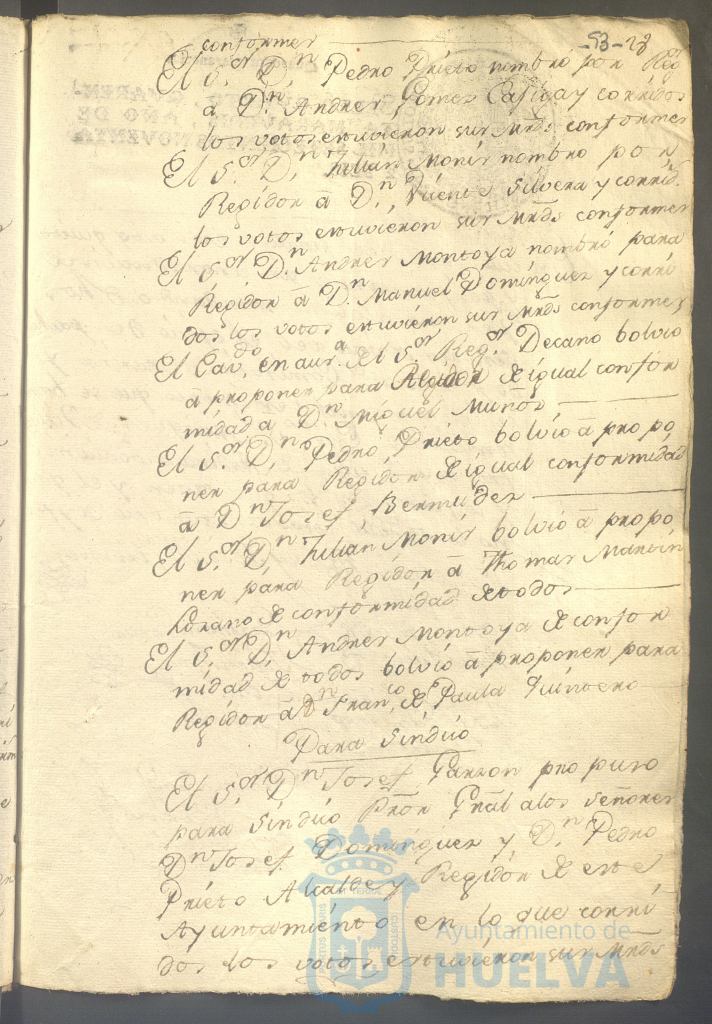 conformes
53-28
El S.or D.n Pedro Prieto nombró por Reg
a D.n Andres Gomez y corridos
los votos estuvieron sus Mrds. conformes
El S.or D.n Julián Monis nombro por
Regidor â D.n Vicente Silvera y corrid.
los votos estuvieron sus Mrds conformes
El S.or D.n Andres Montoya nombró para
Regidor â D.n Manuel Domínguez y corri
dos los votos estuvieron sus Mrds conformes
El Cav.do en aus.a del S.or Reg.or Decano bolvio
a proponer para Regidor de igual confor
midad a D.n Miguel Muños
El S.or D.n Pedro Prieto bolvió â propo
ner para Regidor de igual conformidad
â D.n Josef Bermudez
El S.or D.n Julián Monis bolvió â propo
ner para Regidor â Thomas Martin
Lozano de conformidad de todos
El S.or D.n Andres Montoya de confor
midad de todos bolvió â proponer para
Regidor â D.n Fran.co de Paula Quintero
Para Síndico
El S.or D.n Josef Garzon propuso
para Síndico Pror Gral a los Señores
D.n Josef Domínguez y D.n Pedro
Prieto Alcalde y Regidor de este
Ayuntamiento en lo que corri
dos los votos estuvieron sus Mrds
Ayuntamiento de
HUELVA